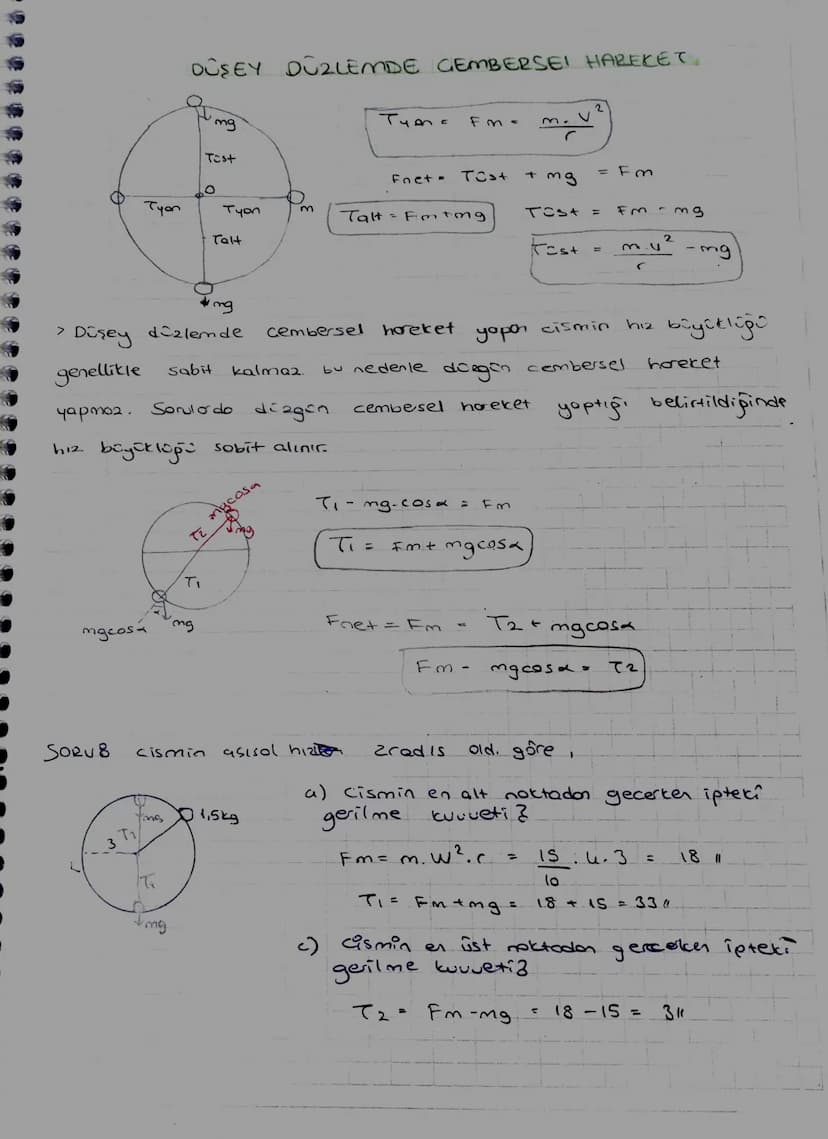 DÜŞEY DÜZLEMDE ÇEMBERSEl HAREKET
mg
Tüst
O
Tyan
Tyan
m
Talt
mg
Tyan = Fm = m.V²/r
Fnet = Tüst + mg = Fm
Talt = Fm+mg
Tüst = Fm - mg
Tüst = m.v²/r - mg
> Düşey düzlemde cembersel hareket yapan cismin hız büyüklüğü
genellikle sabit kalmaz. bu nedenle düzgün cembersel hareket
yapmaz. Sorularda düzgün cembersel hareket yaptığı belirtildiğinde
hız büyüklüğü sabit alınır.
mgcosα
T2
mg
T1
α
mgcosα
mg
T1 - mg.cosα = Fm
T1 = Fm + mgcosα
Fnet = Fm = T2 + mgcosα
Fm - mgcosα = T2
SORU8 cismin açısal hızı 2radis old. göre,
mg
1,5kg
3
T2
T1
mg
a) Cismin en alt noktadan geçerken ipteki
gerilme kuvveti?
Fm = m.W².r = 15/10 . 4.3 = 18 //
T1 = Fm+mg = 18 + 15 = 33 //
c) Cismin en üst noktadan gerceken ipteki
gerilme kuvveti?
T2 = Fm-mg = 18 - 15 = 3 //